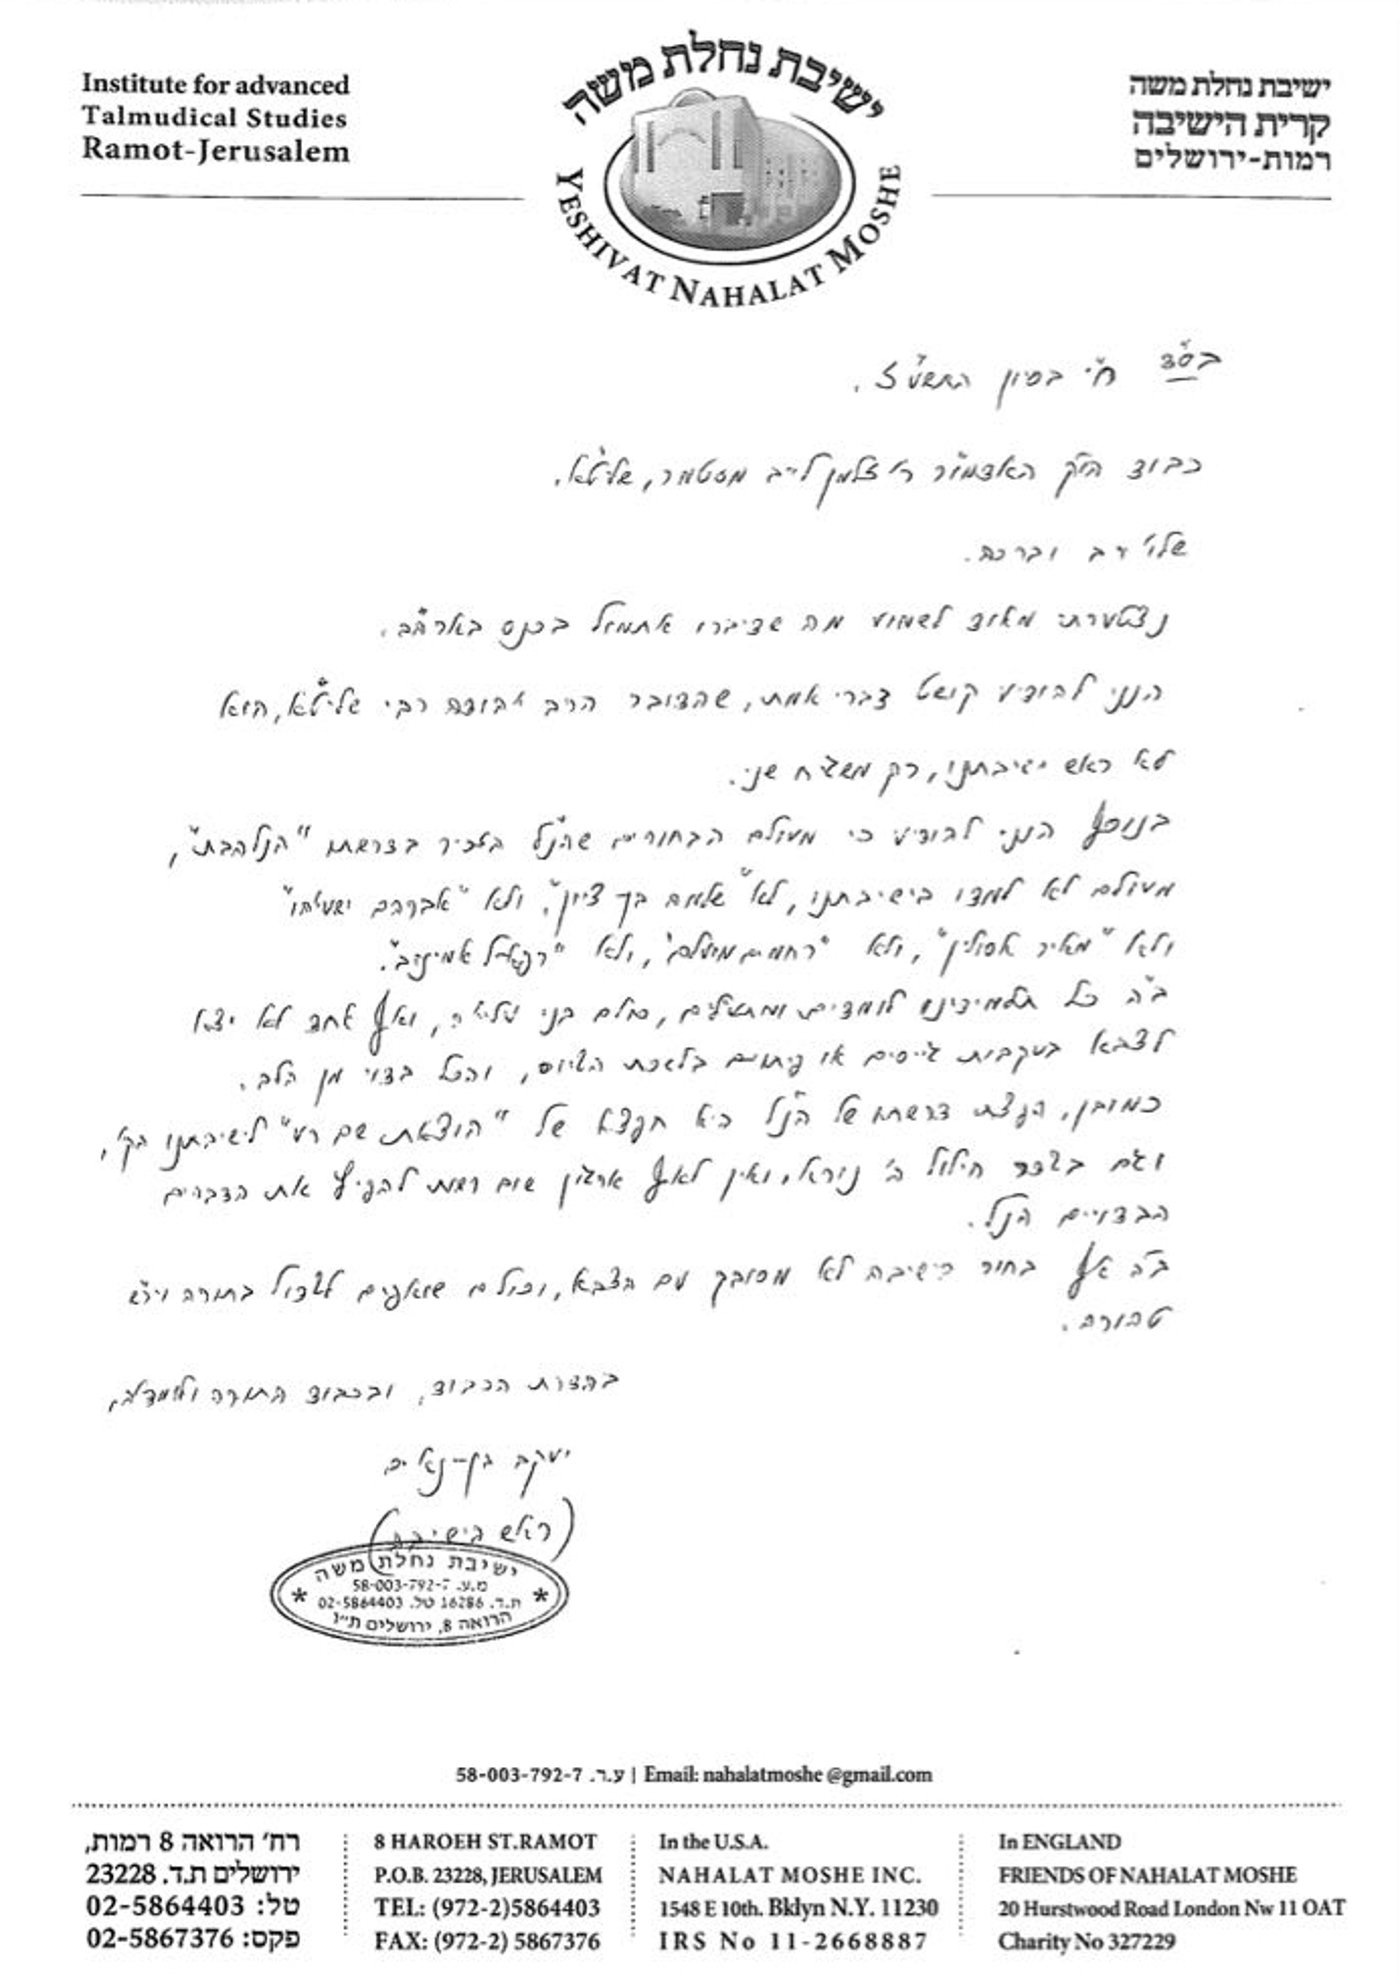 Institute for advanced
Talmudical Studies
Ramot-Jerusalem
ישיבת נחלת משה
YESHIVAT NAHALAT MOSHE
ישיבת נחלת משה
קרית הישיבה
רמות-ירושלים
בס"ד ח"י בסיון התשע"ז.
כבוד הר"ק האדמו"ר ר' זלמן לייב מסטמר, שליט"א.
שלו' רב וברכה.
נצטערתי מאוד לשמוע מה שדיברו אתמול בכנס בארה"ב.
הנני להודיע קושט דברי אמת, שהדובר הרב יהודה רבי שליט"א, הוא
לא ראש ישיבתנו, רק משגיח שני.
בנוסף הנני להודיע כי מעולם הבחורים שהנ"ל הזכיר בדרשתו "הנלהבת",
מעולם לא למדו בישיבתנו, לא "שלמה בן ציון", ולא "אברהם ישעיהו"
ולא "מאיר אסולין", ולא "רחמים מועלם", ולא "רפאל אמינוב".
ב"ה כל תלמידינו לומדים ומתעלים, כולם בני עליה, ואף אחד לא יצא
לצבא בעקבות גייסים או פיתוים בלשכת הגיוס, והכל בדוי מן הלב.
כמובן, הפצת דרשתו של הנ"ל היא חפצא של "הוצאת שם רע" לישיבתנו הק',
וגם בגדר חילול ה' נורא, ואין לאף ארגון שום רשות להפיץ את הדברים
הבדויים הנ"ל.
ב"ה אף בחור בישיבה לא מסובך עם הצבא, וכולם שואפים לגדול בתורה ויר"ש
טהורה.
בהדרת הכבוד, ובכבוד התורה ולומדיה,
יעקב בן-נאים
(ראש הישיבה)
ישיבת נחלת משה
מ.ע. 58-003-792-7
ת.ד. 16286 טל. 02-5864403
הרואה 8, ירושלים ת"ו
58-003-792-7 ע.ר. | Email: nahalatmoshe @gmail.com
רח' הרואה 8 רמות,
ירושלים ת.ד. 23228
טל: 02-5864403
פקס: 02-5867376
8 HAROEH ST.RAMOT
P.O.B. 23228, JERUSALEM
TEL: (972-2)5864403
FAX: (972-2) 5867376
In the U.S.A.
NAHALAT MOSHE INC.
1548 E 10th. Bklyn N.Y. 11230
IRS No 11-2668887
In ENGLAND
FRIENDS OF NAHALAT MOSHE
20 Hurstwood Road London Nw 11 OAT
Charity No 327229